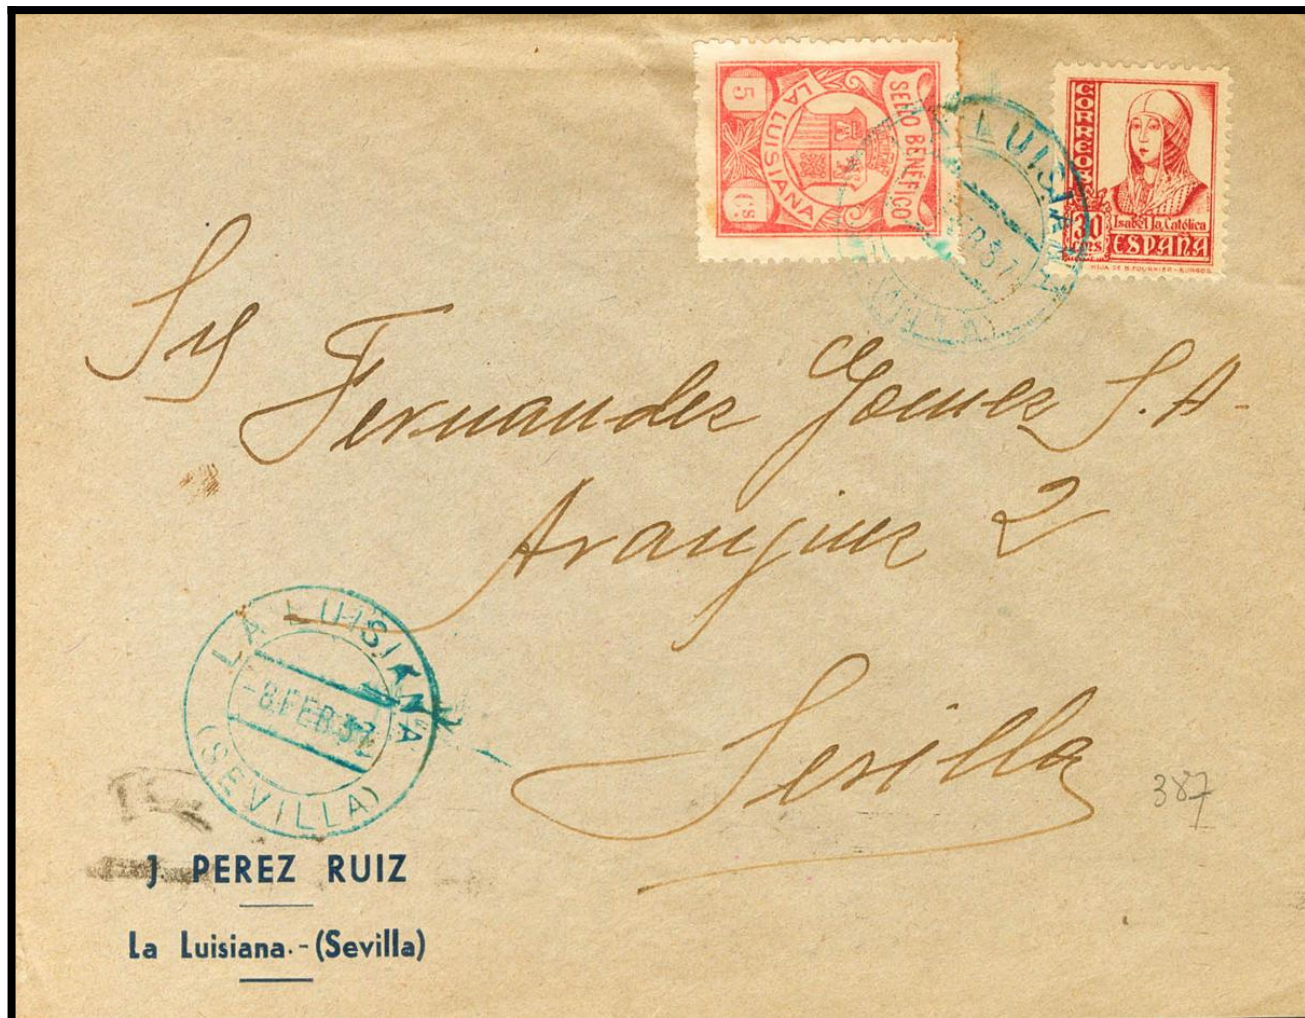 SELLO BENÉFICO
LA LUISIANA
5
Cs
CORREOS
30
CTMS
Isabel la Católica
ESPAÑA
HIJA DE B. FOURNIER - BURGOS
LUISIANA
FEB 37
Sres
Fernandez Gomez S. A.
Aranjuez 2
Sevilla
LA LUISIANA
-8 FEB. 37
(SEVILLA)
387
J. PEREZ RUIZ
La Luisiana.-(Sevilla)